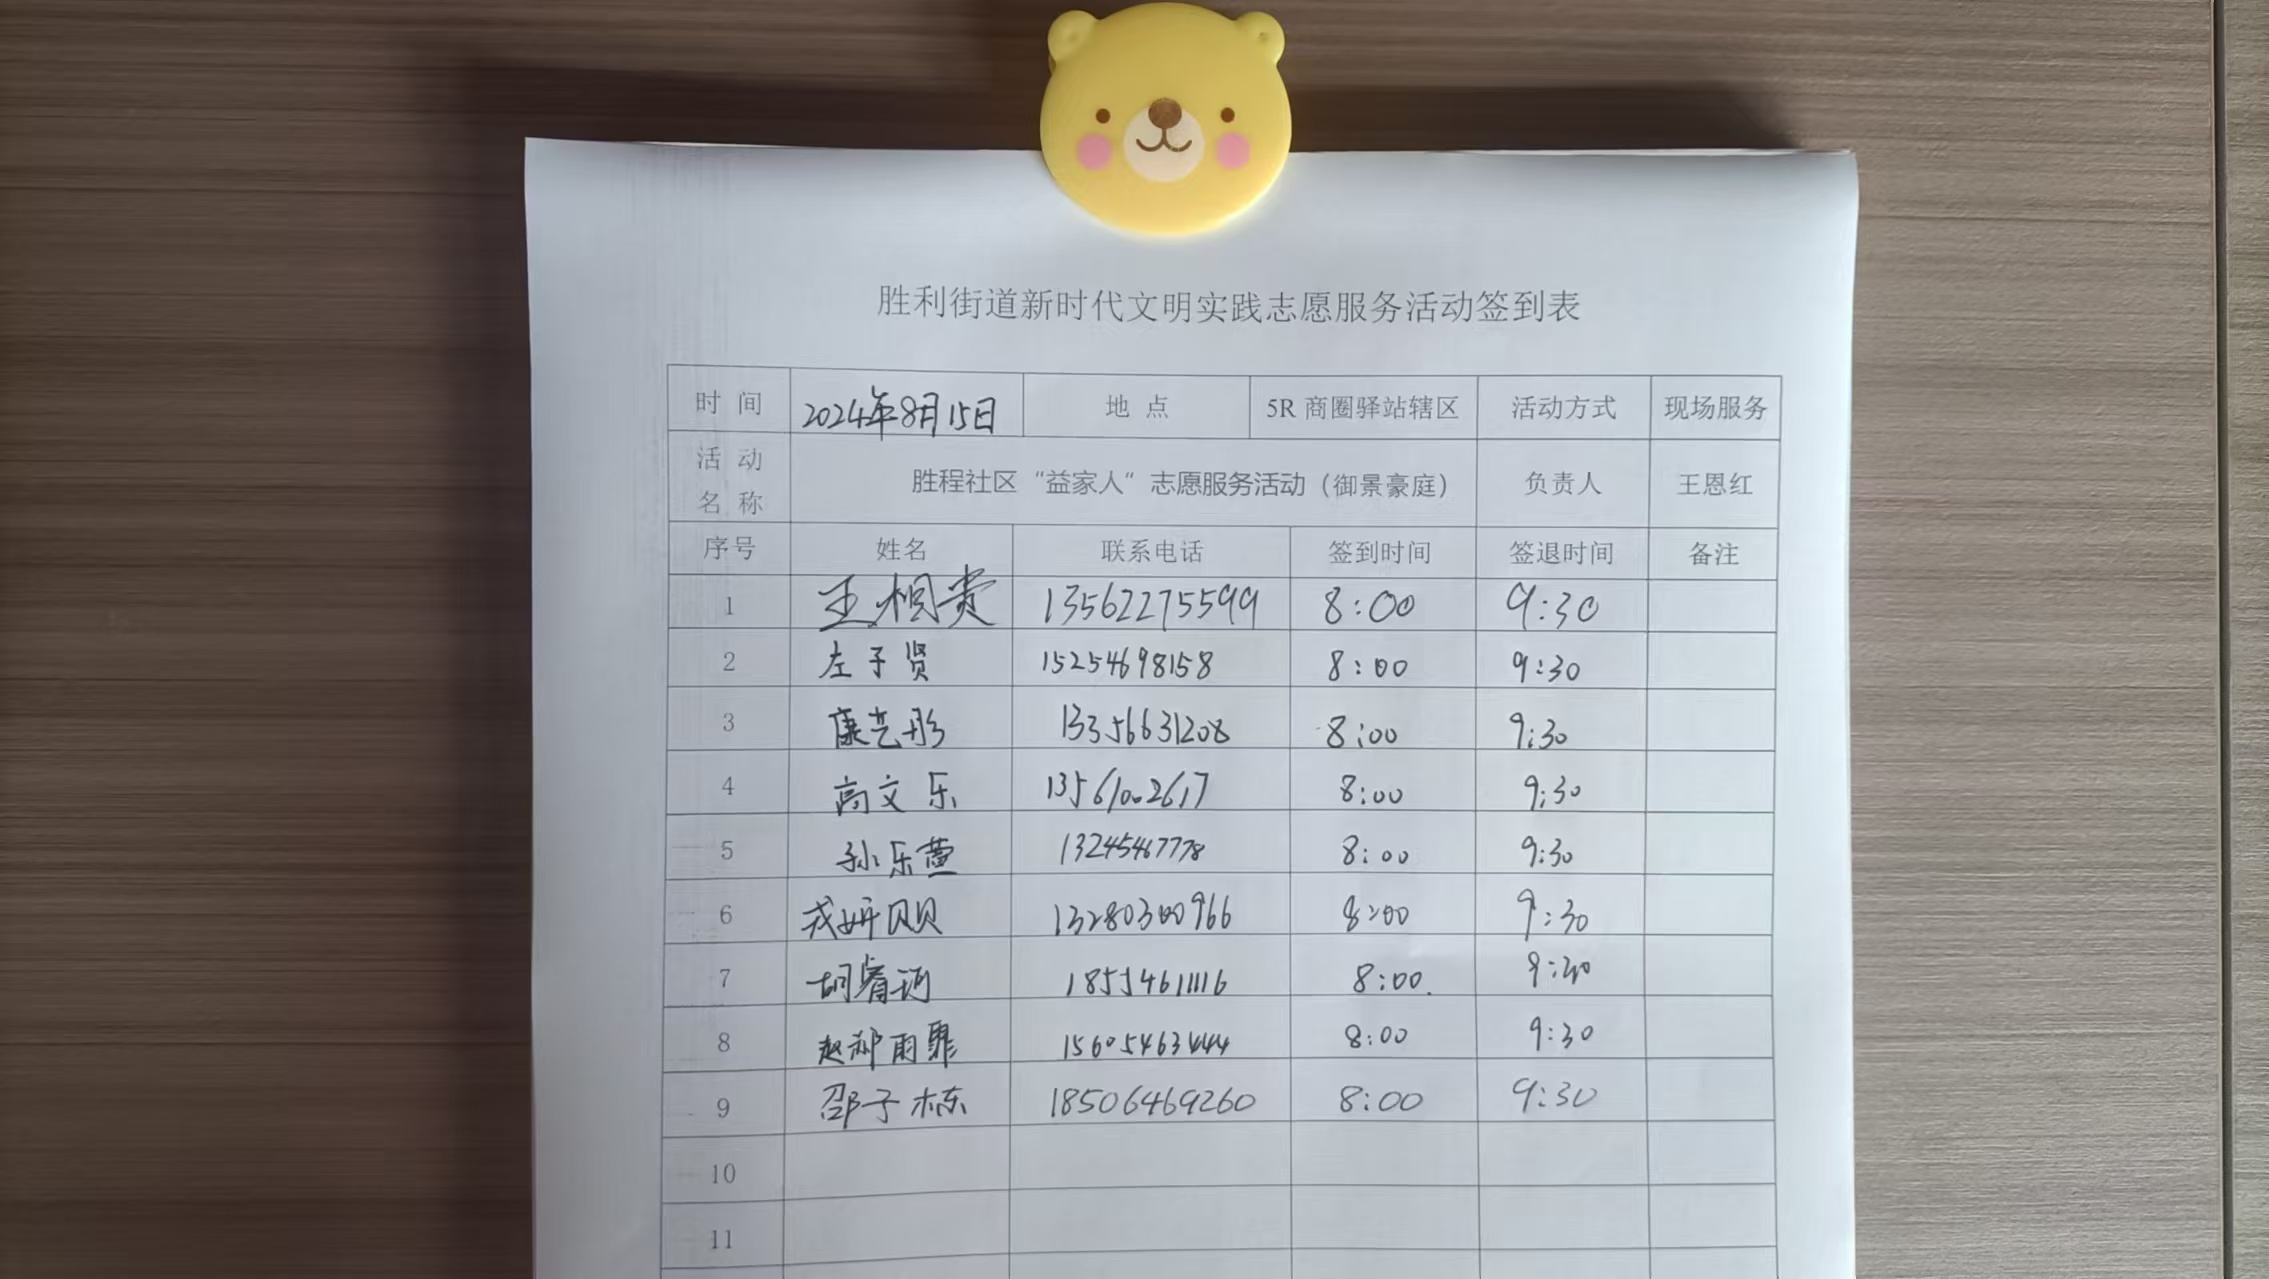 胜利街道新时代文明实践志愿服务活动签到表
时 间 2024年8月15日 地 点 5R 商圈驿站辖区 活动方式 现场服务
活 动 名 称 胜程社区“益家人”志愿服务活动（御景豪庭） 负责人 王恩红
序号 姓名 联系电话 签到时间 签退时间 备注
1 王相贵 13562275599 8:00 9:30
2 左子贤 15254698158 8:00 9:30
3 康艺彤 13356631208 8:00 9:30
4 高文乐 13561002617 8:00 9:30
5 孙乐萱 13245467778 8:00 9:30
6 戎妍贝 13280300966 8:00 9:30
7 胡睿珂 18554611116 8:00 9:30
8 赵郝雨霏 15605463444 8:00 9:30
9 邵子栋 18506469260 8:00 9:30
10
11